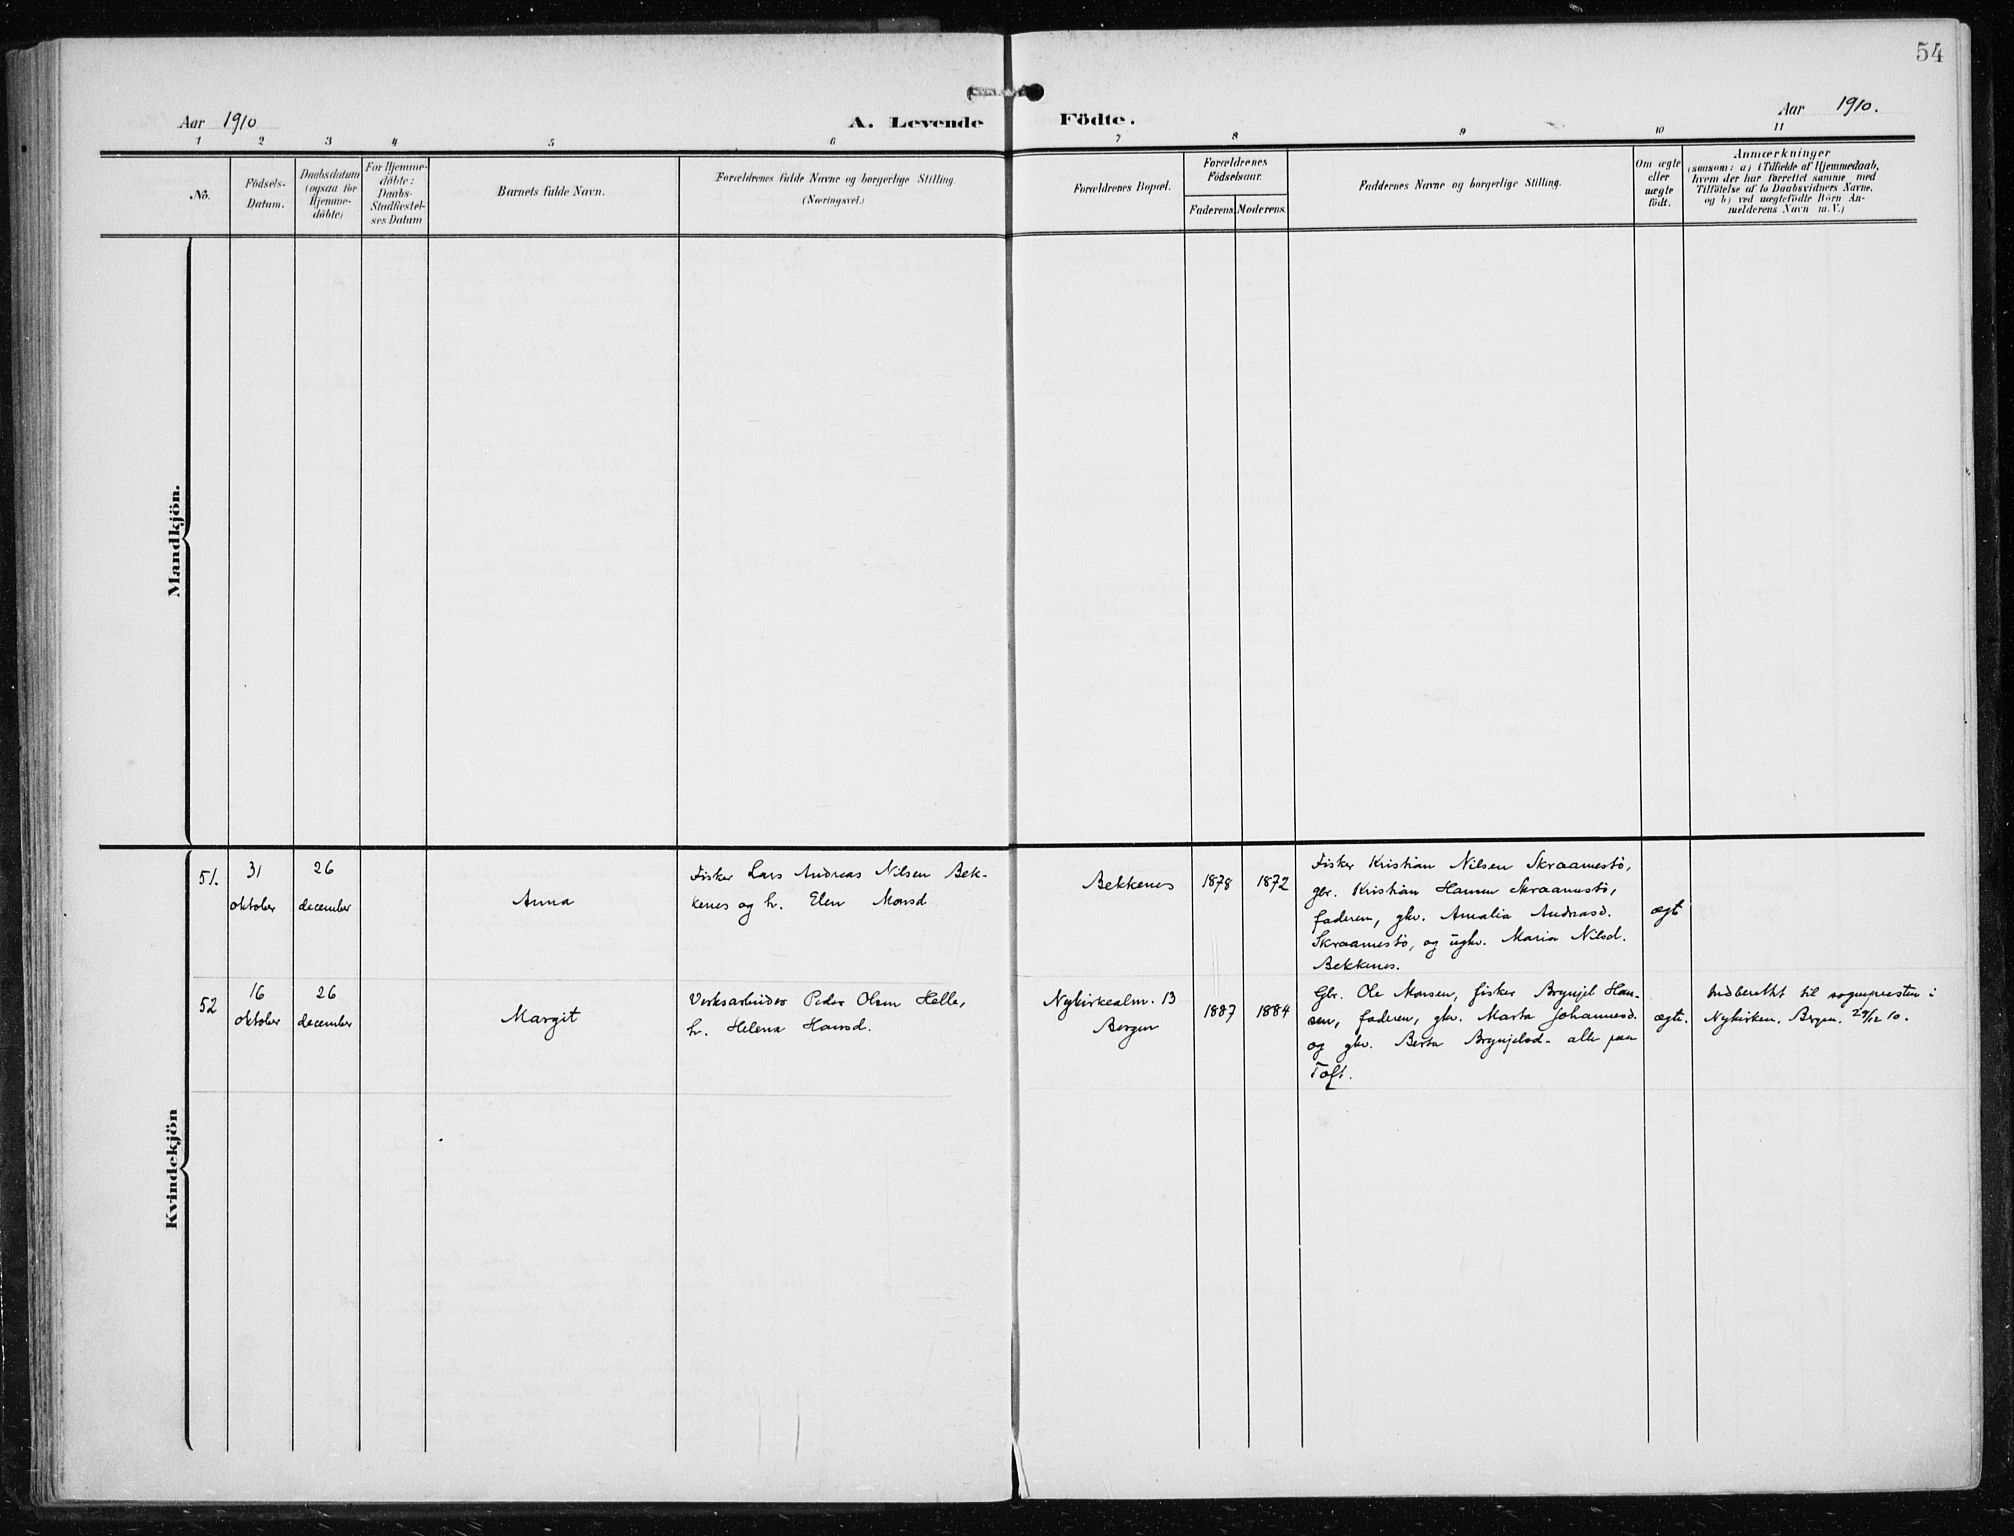 54
Aar 1910
A. Levende Födte.
Aar 1910.
1 2 3 4 5 6 7 8 9 10 11
No.
Födsels-
Datum.
Daabsdatum
(ogsaa for
Hjemme-
döbte)
For Hjemme-
döbte:
Daabs-
Stadfæstel-
ses Datum
Barnets fulde Navn.
Forældrenes fulde Navne og borgerlige Stilling.
(Næringsvei.)
Forældrenes Bopæl.
Forældrenes
Födselsaar.
Faderens. Moderens.
Faddernes Navne og borgerlige Stilling.
Om ægte
eller
uægte
födt.
Anmærkninger
(saasom: a) i Tilfælde af Hjemmedaab,
hvem der har forrettet samme med
Tilföielse af to Daabsvidners Navne,
og b) ved uægtefödte Börn An-
melderens Navn m.V.)
Mandkjön.
Kvindekjön
51.
31
oktober
26
december
Anna
Fisker Lars Andreas Nilsen Bek-
kenes og h. Elen Monsd
Bekkenes
1878
1872
Fisker Kristian Nilsen Skraamestö,
gbr. Kristian Hansen Skraamestö,
faderen, gkv. Amalia Andreasd.
Skraamestö, og ugkv. Maria Nilsd.
Bekkenes.
ægte
52
16
oktober
26
december
Margit
Verksarbeider Peder Olsen Helle,
h. Helena Hansd.
Nykirkealm. 13
Bergen
1887
1884
Gbr. Ole Monsen, fisker Brynjel Han-
sen, faderen, gkv. Marta Johannesd.
og gkv. Berta Brynjelsd. alle paa
Toft.
ægte.
Indberettet til sognepresten i
Nykirken, Bergen. 29/12 10.